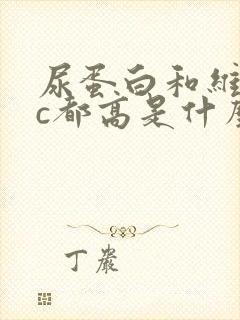 尿蛋白和維
c都高是什麼
丁嚴